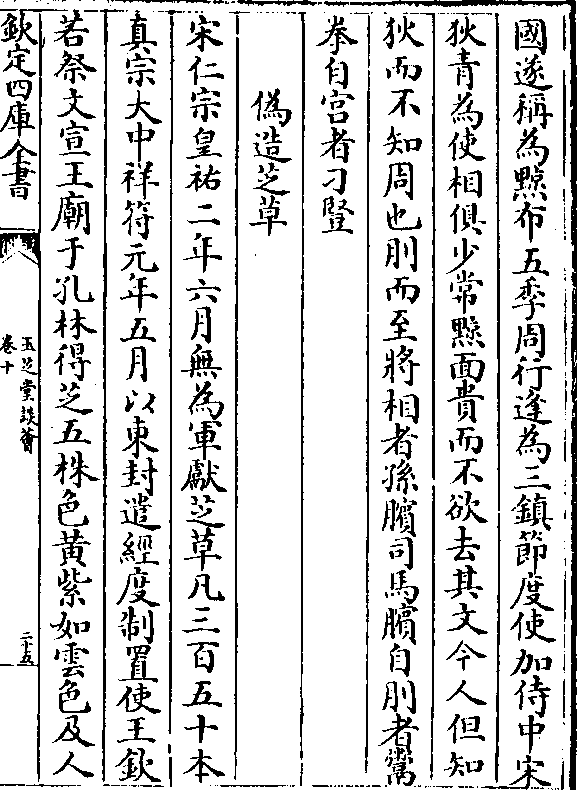 國遂稱為黥布五季周行逢為三鎮節度使加侍中宋
狄青為使相俱少常黥面貴而不欲去其文今人但知
狄而不知周也刖而至將相者孫臏司馬臏自刖者鬻
拳自宮者刁豎
偽造芝草
宋仁宗皇祐二年六月無為軍獻芝草凡三百五十本
真宗大中祥符元年五月以東封遣經度制置使王欽
若祭文宣王廟于孔林得芝五株色黃紫如雲色及人
欽定四庫全書
玉芝堂談薈
卷十
二十五